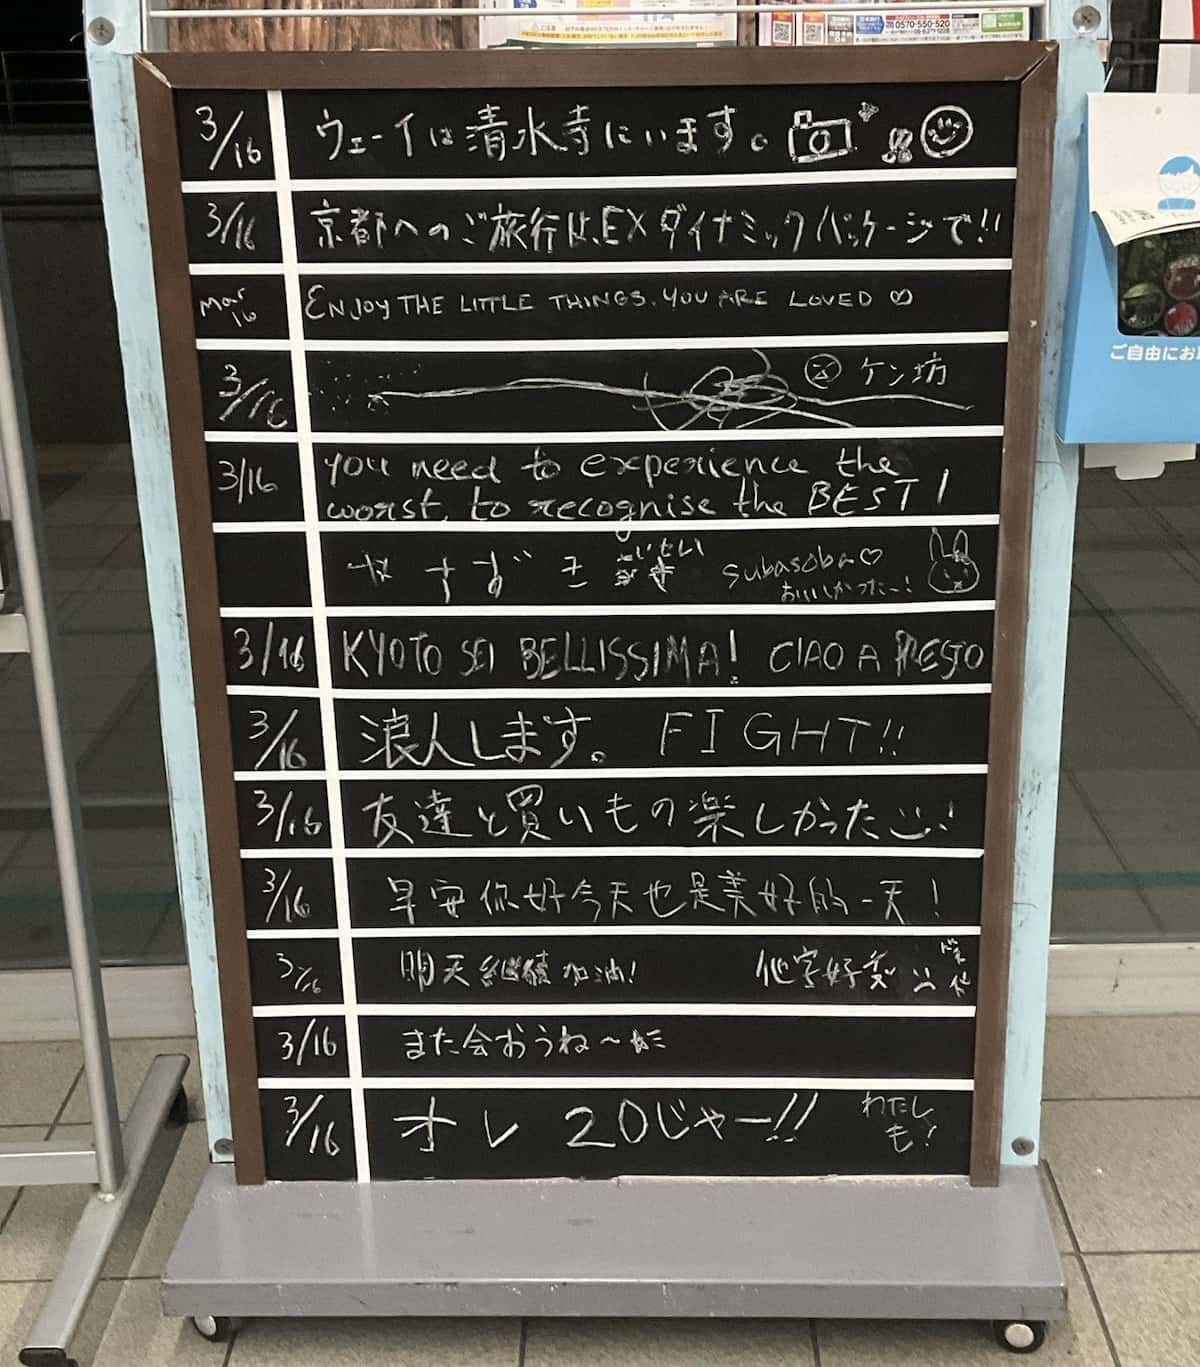 0570-550-520
3/16 ウェーイは清水寺にいます。
3/16 京都へのご旅行は、EXダイナミックパッケージで!!
Mar 16 ENJOY THE LITTLE THINGS. YOU ARE LOVED ♡
3/16 ケン坊
3/16 you need to experience the
worst, to recognise the BEST!
subasoba♡
おいしかったー!
3/16 KYOTO SEI BELLISSIMA! CIAO A PRESTO
3/16 浪人します。 FIGHT!!
3/16 友達と買いもの楽しかった
3/16 早安你好今天也是美好的一天!
3/16 明天继續加油!
3/16 また会おうね〜
3/16 オレ 20じゃー!! わたし
も!
ご自由にお